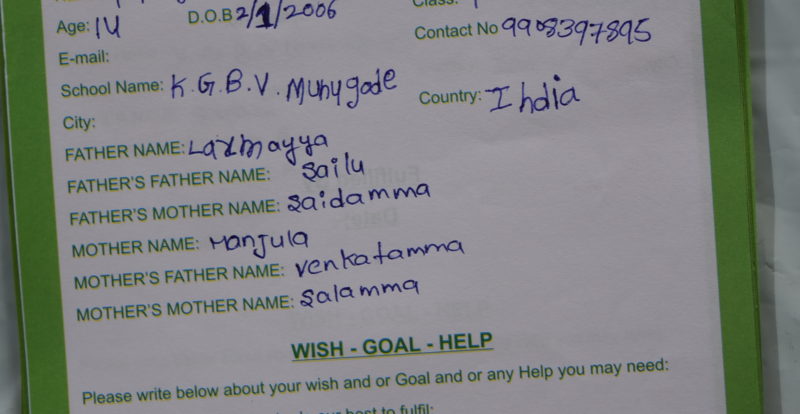 Age: 14 D.O.B 2/1/2006
Contact No 9908397895
E-mail:
School Name: K.G.B.V. Munygode
Country: India
City:
FATHER NAME: Laxmayya
FATHER'S FATHER NAME: Sailu
FATHER'S MOTHER NAME: Saidamma
MOTHER NAME: Manjula
MOTHER'S FATHER NAME: Venkatamma
MOTHER'S MOTHER NAME: Salamma
WISH - GOAL - HELP
Please write below about your wish and or Goal and or any Help you may need:
best to fulfil: